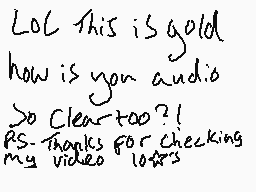 LOL This is gold
how is your audio
So Clear too?!
P.S. Thanks for checking
my video 10☆'s